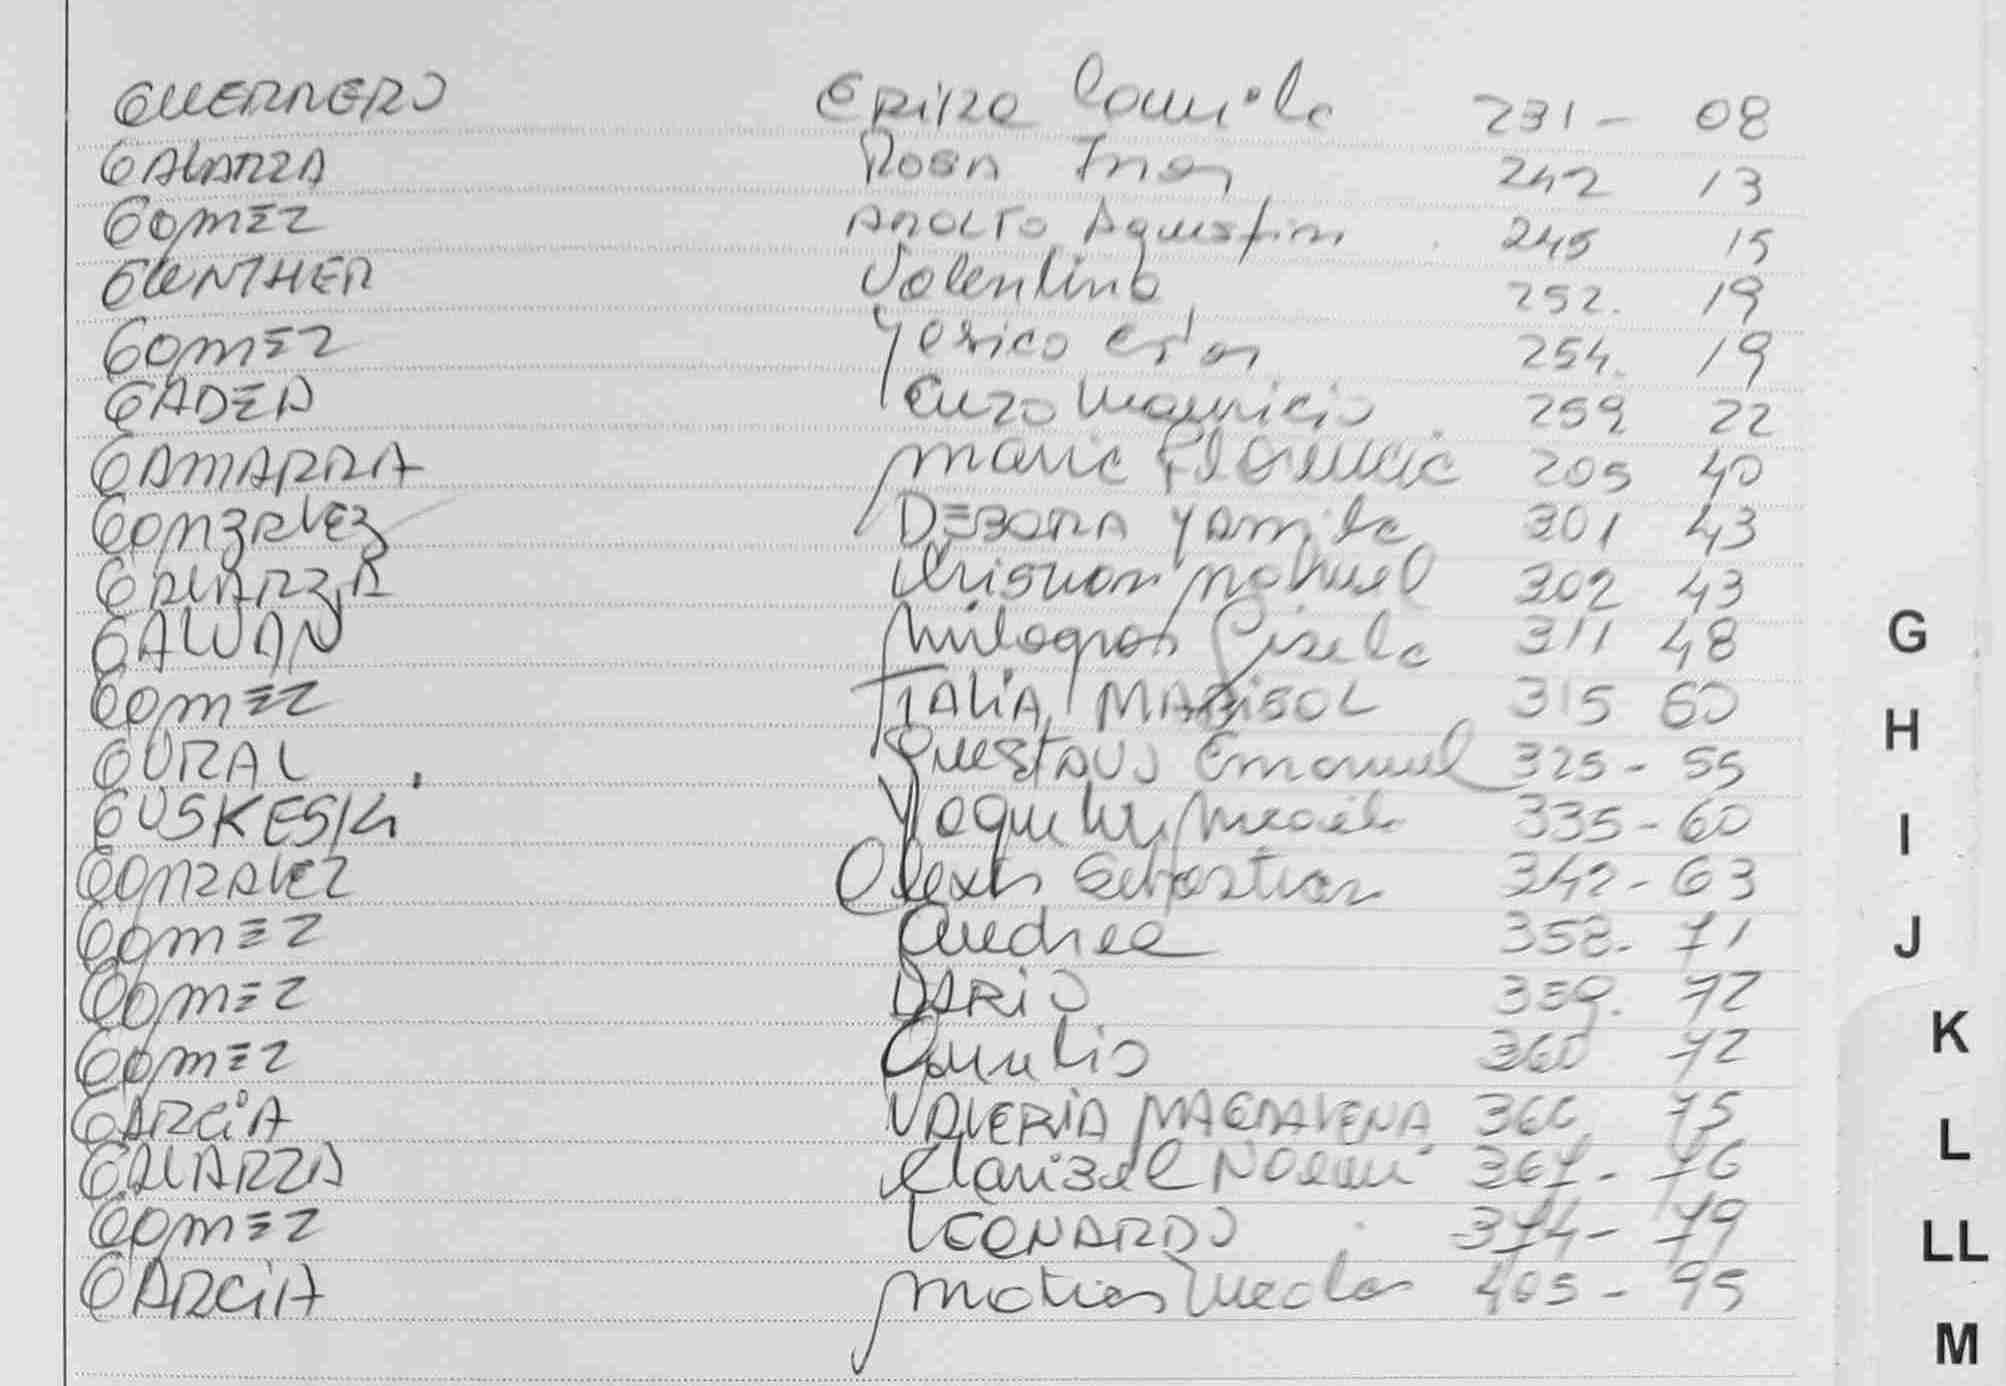 GUERRERO Erika Camila 231 - 08
GALARZA Rosa Ines 242 13
GOMEZ ADOLFO Agustin 245 15
GUNTHER Valentina 252. 19
GOMEZ Yesica 254. 19
GADEA Enzo Mauricio 259 22
GAMARRA Maria Florencia 205 40
GONZALEZ DEBORA YAMila 301 43
GALARZA Cristian Nahuel 302 43
GALVAN Milagros Gisela 311 48
GOMEZ ITALIA MARISOL 315 60
GURAL Gustavo Emanuel 325 - 55
GUSKESKi Yaquelin Micaela 335 - 60
GONZALEZ Alexis Sebastian 342 - 63
GOMEZ Andrea 358. 71
GOMEZ DARIO 359. 72
GOMEZ 360 72
GARCIA VALERIA MAGDALENA 366 75
GALARZA Marisel Noemi 367 - 76
GOMEZ LEONARDO 374 - 79
GARCIA Matias 405 - 95
G
H
I
J
K
L
LL
M